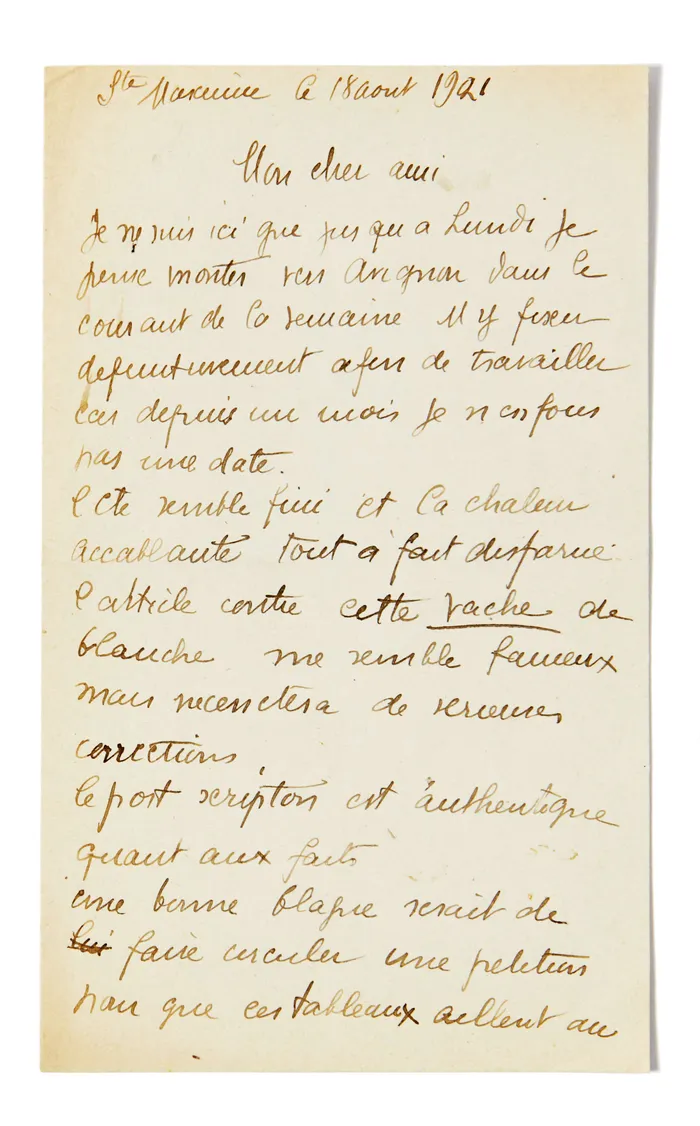 Ste Maxime le 18 aout 1921
Mon cher ami
Je ne suis ici que jusqu a Lundi Je
pense monter vers Avignon dans le
courant de la semaine M y fixer
definitivement afin de travailler
car depuis un mois Je n en fous
pas une date.
l Ete semble fini et la chaleur
accablante tout a fait disparue
l article contre cette vache de
blanche me semble fameux
mais necessitera de serieuses
corrections
le post scripton est authentique
quant aux faits
une bonne blague serait de
lui faire circuler une petition
pour que ces tableaux aillent au